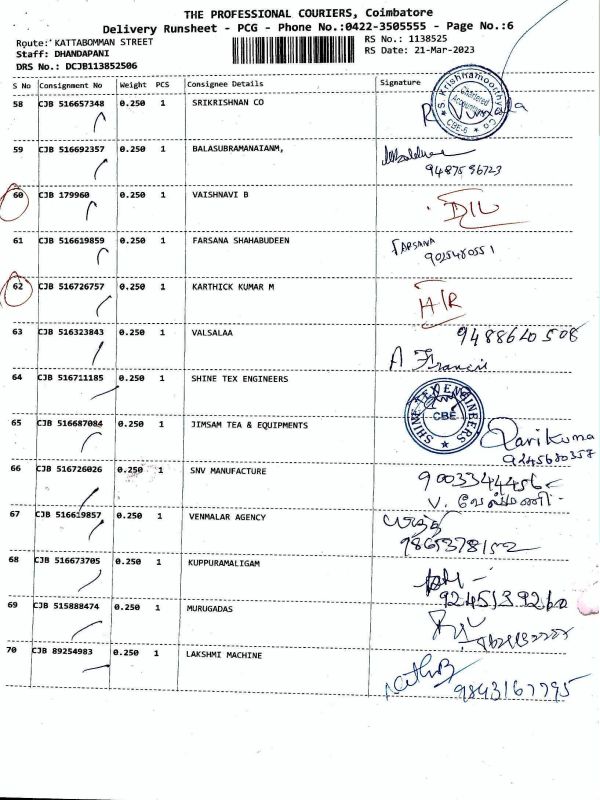 THE PROFESSIONAL COURIERS, Coimbatore
Delivery Runsheet - PCG - Phone No.:0422-3505555 - Page No.:6
Route: KATTABOMMAN STREET RS No.: 1138525
Staff: DHANDAPANI RS Date: 21-Mar-2023
DRS No.: DCJB113852506
S No Consignment No Weight PCS Consignee Details Signature
58 CJB 516657348 0.250 1 SRIKRISHNAN CO
S. Krishnamoorthy & Co Chartered Accountants CBE-6
59 CJB 516692357 0.250 1 BALASUBRAMANAIANM,
9487596723
60 CJB 179960 0.250 1 VAISHNAVI B
D/L
61 CJB 516619859 0.250 1 FARSANA SHAHABUDEEN
FARSANA
9025480551
62 CJB 516726757 0.250 1 KARTHICK KUMAR M
H/R
63 CJB 516323843 0.250 1 VALSALAA
9488620508
A Francis
64 CJB 516711185 0.250 1 SHINE TEX ENGINEERS
SHINE TEX ENGINEERS CBE
65 CJB 516687084 0.250 1 JIMSAM TEA & EQUIPMENTS
66 CJB 516726026 0.250 1 SNV MANUFACTURE
V. வேல்மணி
67 CJB 516619857 0.250 1 VENMALAR AGENCY
9865378152
68 CJB 516673705 0.250 1 KUPPURAMALIGAM
69 CJB 515888474 0.250 1 MURUGADAS
70 CJB 89254983 0.250 1 LAKSHMI MACHINE
9843167795